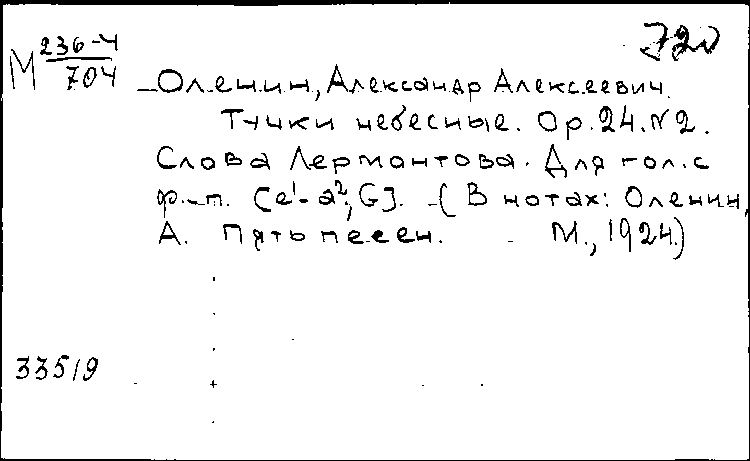 720
М 236-4
704
Оленин, Александр Алексеевич.
Тучки небесные. Op. 24. № 2.
Слова Лермонтова. Для гол. с
ф.-п. [e¹-a², G]. - (В нотах: Оленин,
А. Пять песен. М., 1924.)
33519